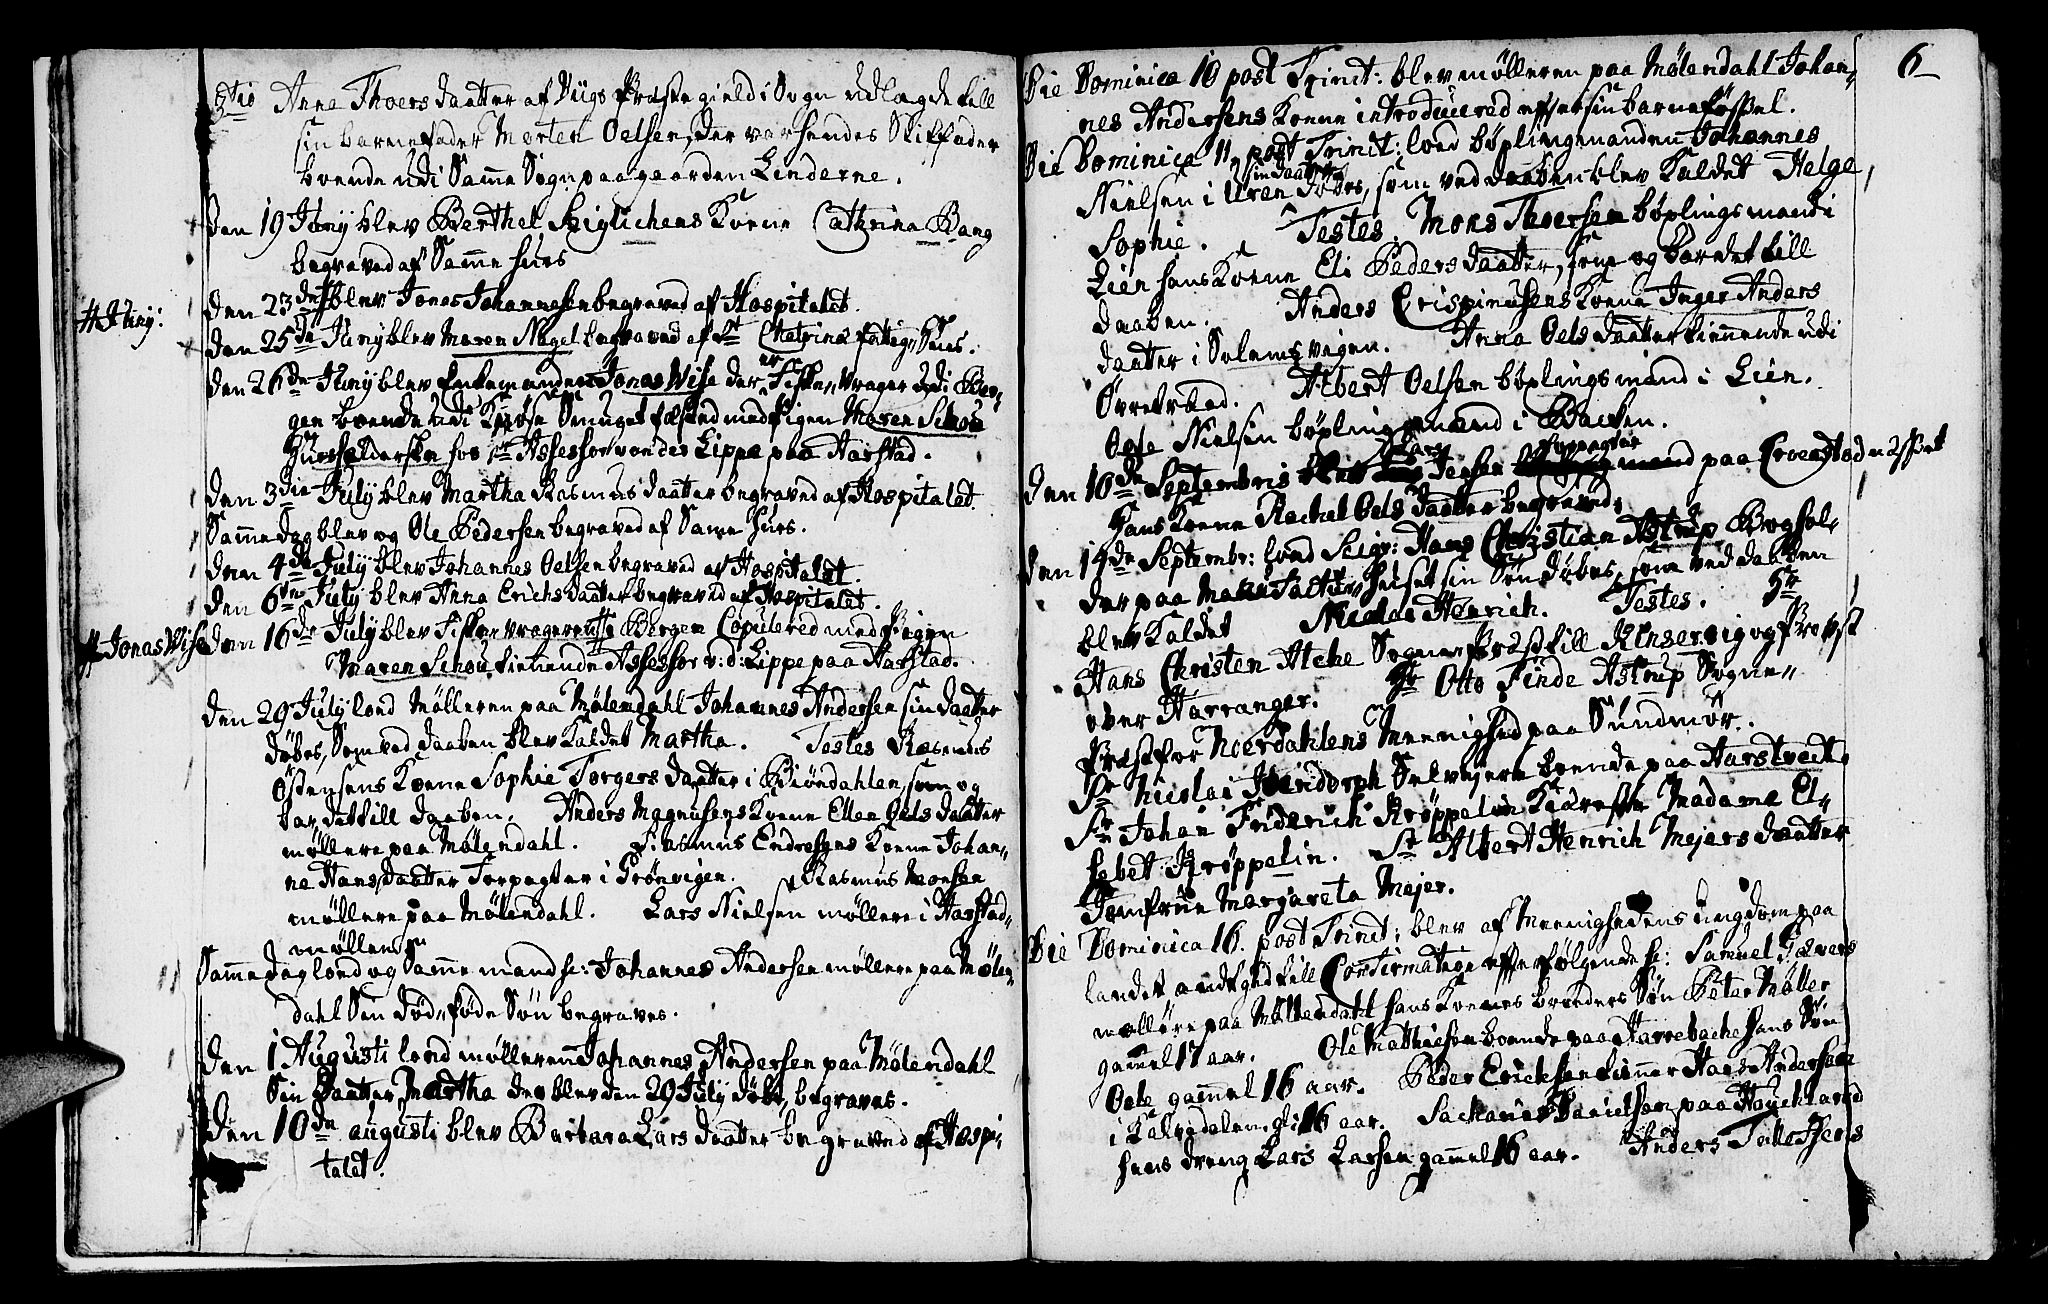 3tio Anna Thoers daatter af Viigs Præstegield i Sogn udlagde till
sin barnefader Morten Oelsen, der var hendes Stiffader
boende udi Samme Sogn paa gaarden Linderne.
Den 19 Juny blev Berthel Seiglichens Kone Cathrina Bang
begraved af Samme Huus
Den 23de # blev Jonas Johannesen begraved af Hospitalet.
# Juny:
Den 25de Juny blev Maren Nagel begraved af St Chatrinæ fattig Huus.
Den 26de Juny blev Enkemanden Jonas Wise der er Fiske Vrager udi Ber-
gen boende udi Smuget fæsted med Pigen Maren Schou
Huusholderske hos Hr Assessor von der Lippe paa Aarstad.
Den 3die July blev Martha Rasmus daatter begraved af Hospitalet.
Samme dag blev og Ole Pedersen begraved af Same Huus.
Den 4de July blev Johannes Oelsen begraved af Hospitalet.
Den 6te July blev Anna Erichs daatter begraved af Hospitalet.
# Jonas Wise
Den 16de July blev Fiske vrageren # i Bergen Copulered med Pigen
Maren Schou tienende Assessor v: d: Lippe paa Aarstad.
Den 29 July lod Mølleren paa Mølendahl Johannes Andersen sin daatter
døbes, Som ved daaben blev Kaldet Martha. Testes Rasmus
Østensens Kone Sophie Torgers daatter i Biøndahlen, som og
bar det till daaben. Anders Magnusens Kone Ellen Oels daatter
møllere paa Mølendahl. Rasmus Endresens Kone Johan-
ne Hans daatter Forpagter i Grønvigen. Rasmus Monsen
møllere paa Mølendahl. Lars Nielsen møllere i Aarstad-
møllen.
Samme dag lod og Samme mand se: Johannes Andersen møllere paa Mølen-
dahl Sin Død-føde Søn begraves.
Den 1 Augusti lod mølleren Johannes Andersen paa Mølendahl
Sin Daatter Martha der blev den 29 July døbt, begraves.
Den 10de augusti blev Barbara Lars daatter begraved af Hospi-
talet.
6
Die Dominica 10 post Trinit: blev mølleren paa Mølendahl Johan-
nes Andersens Kone introducered effter sin barnefødsel.
Die Dominica 11 post Trinit: lod bøplingmanden Johannes
Nielsen i Uren sin daatter døbes, som ved daaben blev Kaldet Helge
Sophie. Testes Mons Thoersen bøplingsmand i
Lien hans Kone Eli Peders daatter, som og bar det till
daaben. Anders Crispinusens Kone Inger Anders
daatter i Solemsvigen. Anna Oels daatter tienende udi
Øvretvæd. Albert Oelsen bøplingsmand i Lien.
Oele Nielsen bøplingsmand i Backen.
Den 10de Septembris Jensen forpagter paa
Hans Kone Rachel Oels daatter begraved.
Den 14de Septembr: lod Seigr: Hans Christian Astrup Boghol-
der paa Manufactur Huset sin Søn døbes, som ved daaben
blev Kaldet Nicolai Henrich. Testes. Hr
Hans Christen Atche Sogne Præst till Kinservig og Provst
over Harranger. Hr Otto Finde Astrup Sogne-
Præst for Noerdahlens Meenighed paa Sundmør.
Sr Nicolai Selvejere boende paa Harstvedt.
Sr Johan Friderich Krøppelin Kiæreste Madame El-
sebet Krøppelin. Sr Albert Henrich Mejers daatter
Jomfrue Margareta Mejer.
Die Dominica 16. post Trinit: blev af Meenighedens ungdom paa
landet antaged till Confirmation effterfølgende se: Samuel
møllere paa Møllendahl hans Kones broders Søn Peter Møller
gammel 17 aar. Ole Mathiesen boende paa Harrebache hans Søn
Oele gammel 16 aar. Peder Erichsen tienner Hans Andersen
i Kalvedalen. gl: 16 aar. Sacharias Danielsen paa Houchland
hans dreng Lars Larsen gammel 16 aar. Anders Tollefsens